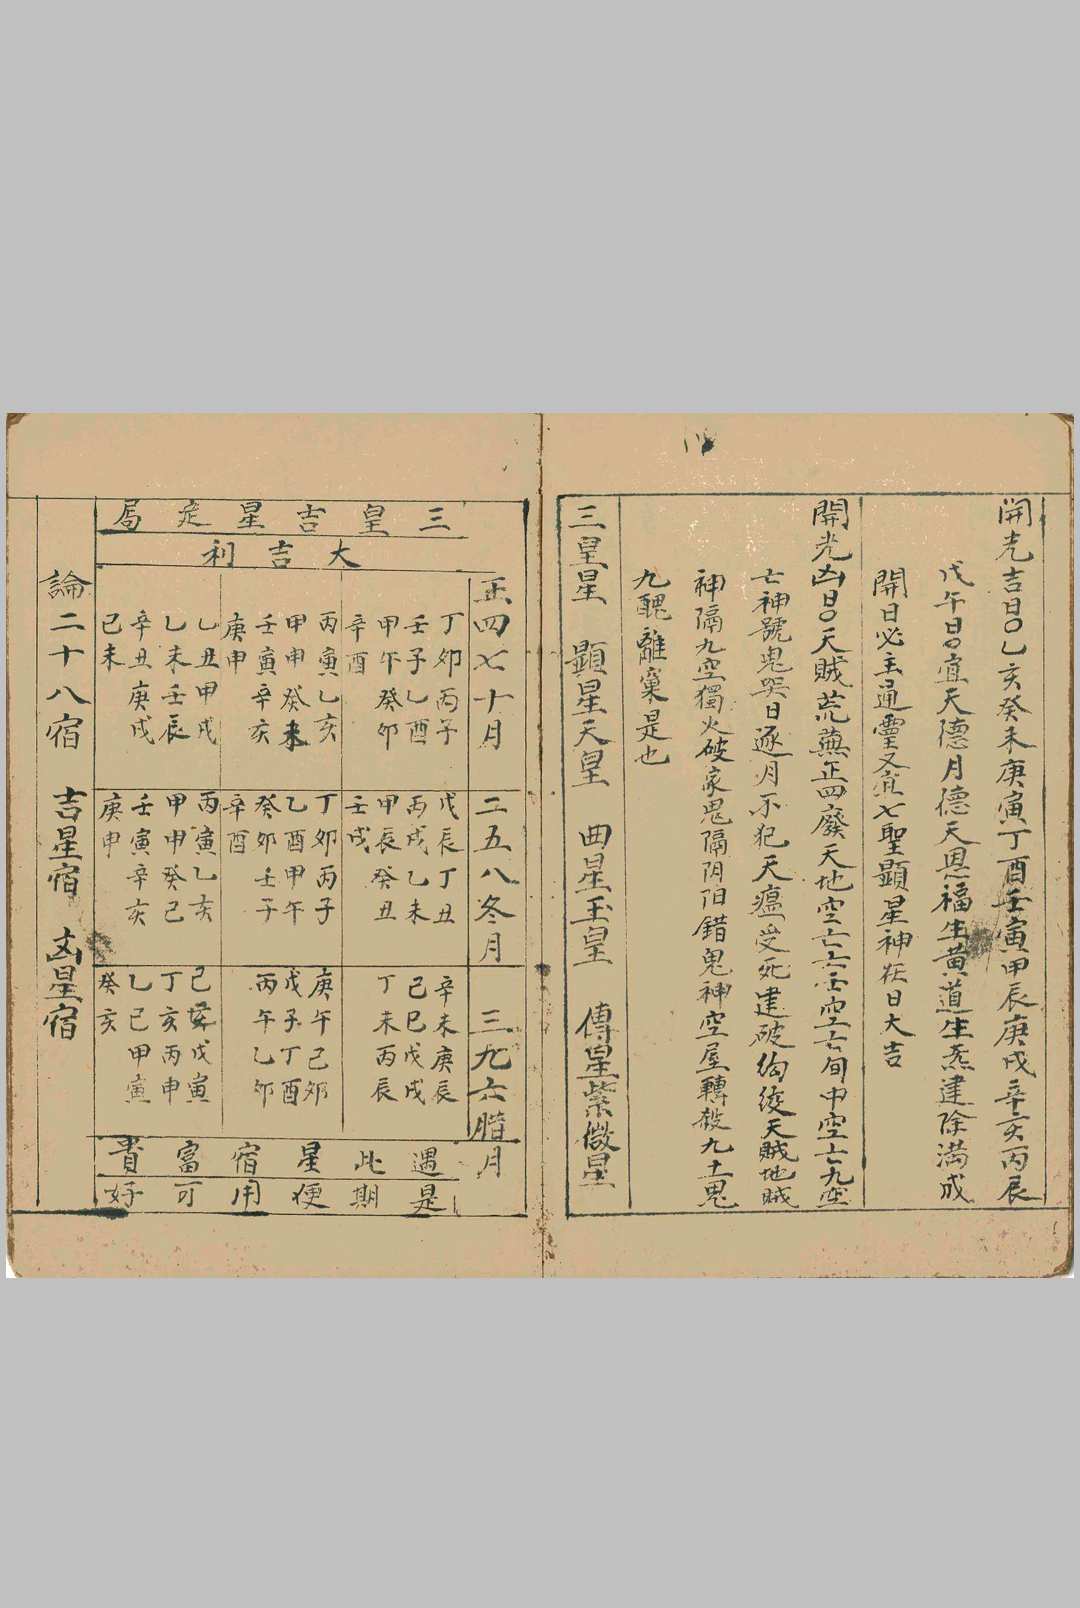 開光吉日〇乙亥癸未庚寅丁酉壬寅甲辰庚戌辛亥丙辰
戊午日〇宜天德月德天恩福生黃道生炁建除満成
開日必主通靈又宜七聖顯星神在日大吉
開光凶日〇天賊荒蕪正四廢天地空亡六壬空亡旬中空亡九空
亡神號鬼哭日逐月不犯天瘟受死建破勾絞天賊地賊
神隔九空獨火破家鬼隔阴阳錯鬼神空屋轉殺九土鬼
九醜離窠是也
三皇星 顯星天皇 曲星玉皇 傅星紫微星
三皇吉星定局
大吉利
正四七十月
丁卯丙子
壬子乙酉
甲午癸卯
辛酉
丙寅乙亥
甲申癸未
壬寅辛亥
庚申
乙丑甲戌
乙未壬辰
辛丑庚戌
己未
二五八冬月
戊辰丁丑
丙戌乙未
甲辰癸丑
壬戌
丁卯丙子
乙酉甲午
癸卯壬子
辛酉
丙寅乙亥
甲申癸己
壬寅辛亥
庚申
三九六腊月
辛未庚辰
己巳戊戌
丁未丙辰
庚午己卯
戊子丁酉
丙午乙卯
己亥戊寅
丁亥丙申
乙己甲寅
癸亥
遇此星宿富貴
是期便用可好
論二十八宿 吉星宿 凶星宿